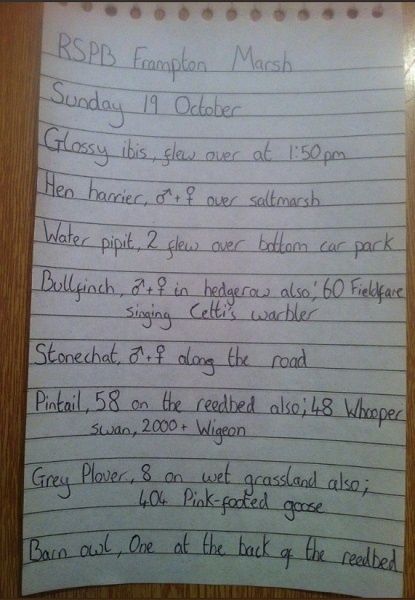 RSPB Frampton Marsh
Sunday 19 October
Glossy ibis, flew over at 1:50pm
Hen harrier, ♂+♀ over saltmarsh
Water pipit, 2 flew over bottom car park
Bullfinch, ♂+♀ in hedgerow also; 60 Fieldfare
singing Cetti's warbler
Stonechat, ♂+♀ along the road
Pintail, 58 on the reedbed also; 48 Whooper
swan, 2000+ Wigeon
Grey Plover, 8 on wet grassland also;
404 Pink-footed goose
Barn owl, One at the back of the reedbed